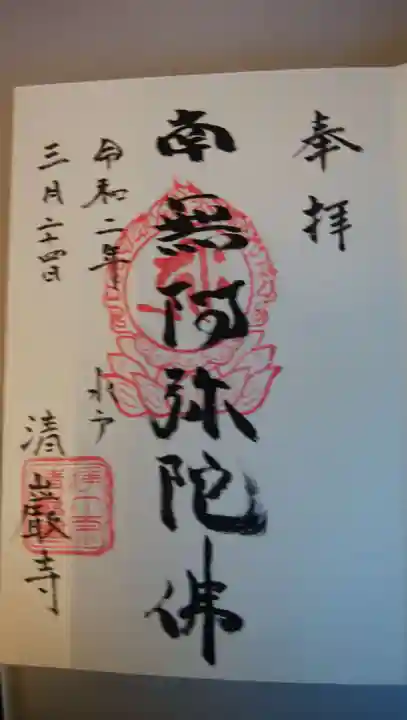 奉拝
南無阿弥陀佛
令和二年
三月二十四日
水戸
清巖寺